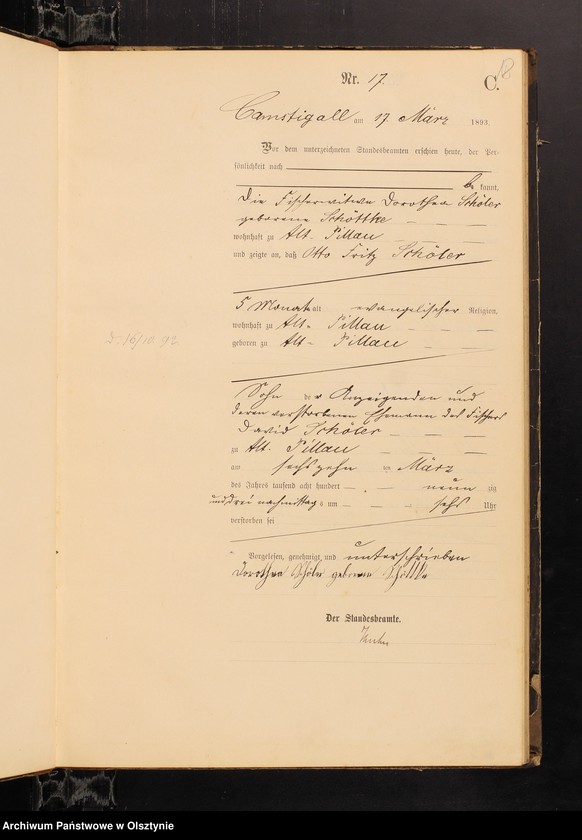 18
Nr. 17.
C.
Camstigall am 17. März 1893.
Vor dem unterzeichneten Standesbeamten erschien heute, der Per-
sönlichkeit nach
be kannt,
die Fischerwitwe Dorothea Schöler
geborene Schöttke
wohnhaft zu Alt-Pillau
und zeigte an, daß Otto Fritz Schöler
5 Monate alt evangelischer Religion,
wohnhaft zu Alt-Pillau
geboren zu Alt-Pillau
d. 16/10. 92
Sohn der Anzeigenden und
deren verstorbenen Ehemann des Fischers
David Schöler
zu Alt-Pillau
am sechszehn ten März
des Jahrs tausend acht hundert neun zig
und drei nachmittags um sechs Uhr
verstorben sei
Vorgelesen, genehmigt und unterschrieben
Dorothea Schöler geborene Schöttke
Der Standesbeamte.
Archiwum Państwowe w Olsztynie